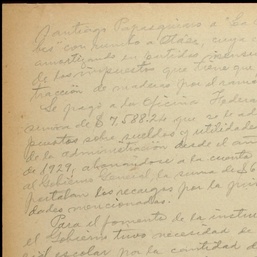 Santiago Papasquiaro a "La
bes" con rumbo a
amortizando en partidas
de los impuestos que tiene que
tracción de maderas por el ramo
Se pagó a la Oficina Federal
suma de $ 9,588.24 que se le
puestos sobre sueldos y utilidades
de la administración desde el
de 1929, abonándose a la cuenta
del Gobierno General la suma de $ 6
portaban los recargos por la
dades mencionadas.
Para el fomento de la instruc
el Gobierno tuvo necesidad de
cil escolar por la cantidad de